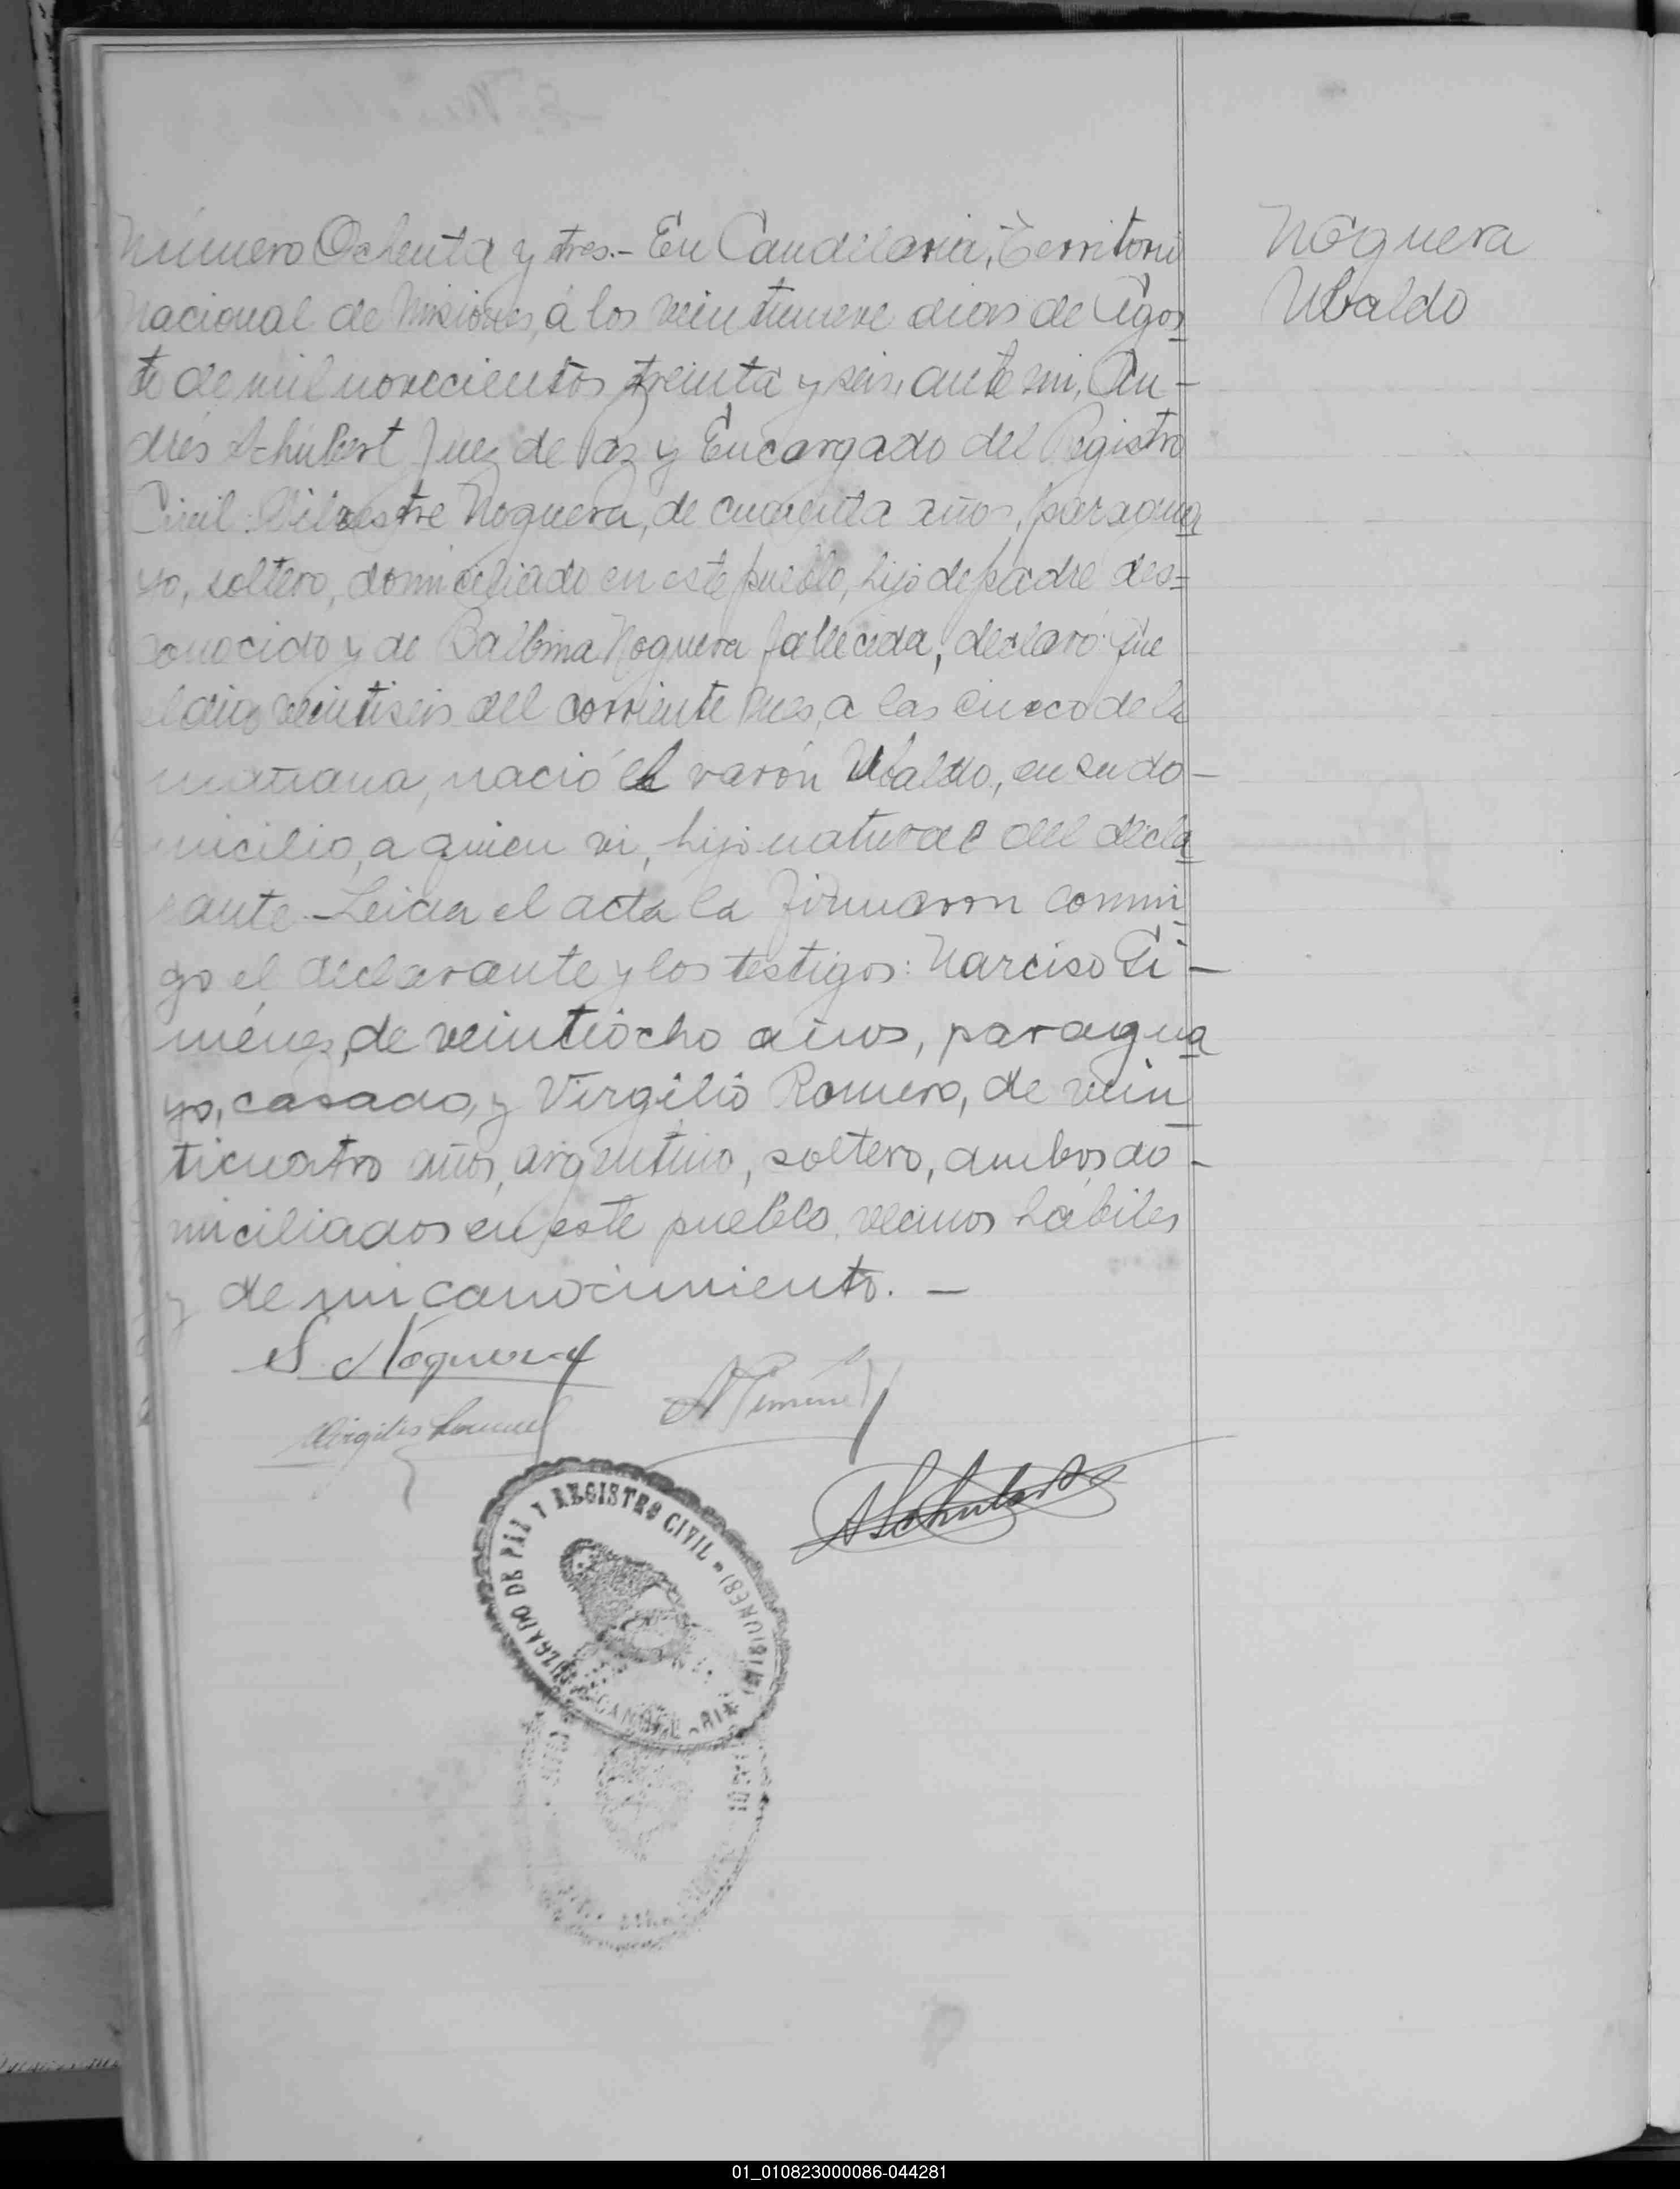 Número Ochenta y tres.- En Candelaria, Territorio
Nacional de Misiones, á los veintinueve dias de Agos
to de mil novecientos treinta y seis, ante mi, An-
drés Schubert Juez de Paz y Encargado del Registro
Civil: Silvestre Noguera, de cuarenta años, paragua
yo, soltero, domiciliado en este pueblo, hijo de padre des=
conocido y de Balbina Noguera fallecida, declaró: Que
el dia veintiseis del corriente mes, a las cinco de la
mañana, nació el varón Ubaldo, en su do-
micilio, a quien vi, hijo natural del decla
rante.- Leida el acta la firmaron conmi
go el declarante y los testigos: Narciso Gi-
ménez, de veintiocho años, paragua
yo, casado, y Virgilio Romero, de vein
ticuatro años, argentino, soltero, ambos do-
miciliados en este pueblo, vecinos hábiles
y de mi conocimiento. -
Noguera
Ubaldo
S. Noguera
Virgilio Romero
N Gimenez
ASchubert
JUZGADO DE PAZ Y REGISTRO CIVIL - (MISIONES)
CANDELARIA
01_010823000086-044281